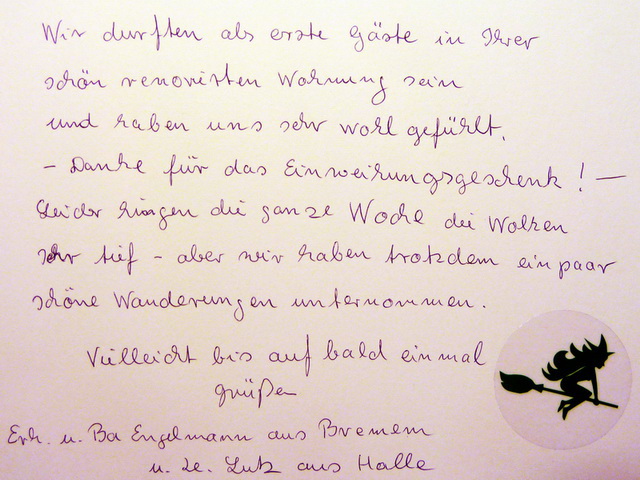 Wir durften als erste Gäste in Ihrer
schön renovierten Wohnung sein
und haben uns sehr wohl gefühlt.
– Danke für das Einweihungsgeschenk! –
Leider hingen die ganze Woche die Wolken
sehr tief – aber wir haben trotzdem ein paar
schöne Wanderungen unternommen.
Vielleicht bis auf bald einmal
grüßen
Erh. u. Ba Engelmann aus Bremen
u. Le. Lutz aus Halle